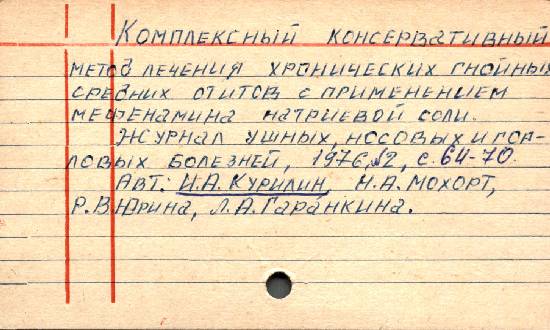 Комплексный консервативный
метод лечения хронических гнойных
средних отитов с применением
мефенамина натриевой соли.
Журнал ушных, носовых и гор-
ловых болезней, 1976, №2, с. 64-70.
Авт.: И.А. Курилин, Н.А. Мохорт,
Р.В. Юрина, Л.А. Гаранкина.